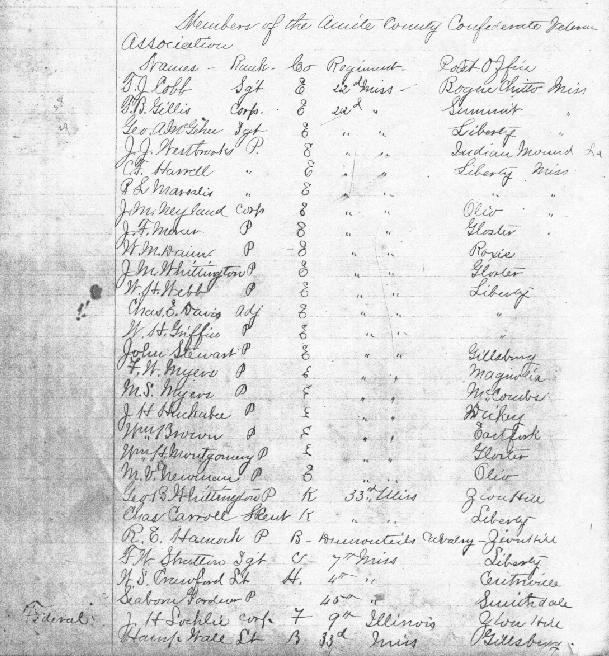 Members of the Amite County Confederate Veteran
Association
Names - Rank - Co Regiment - Post Office
T. J. Cobb Sgt E 22d Miss - Bogue Chitto Miss
T. B. Gillis Corp. E 22d " Summit "
Geo. A. McGehee Sgt E " " Liberty "
J. J. Westbrooks P. E " " Indian Mound La
C. F. Harrell " E " " Liberty Miss.
" E " " " "
J. M. Neyland Corp E " " Olio "
J. F. P E " " Gloster "
W. M. P E " " Roxie
J. M. Whittington P E " " Gloster
W. H. Webb P E " " Liberty
Chas. E. Davis Adj E " " "
W. H. Griffin P E " " "
John Stewart P E " " Gillsburg
F. W. Myers P E " " Magnolia
M. S. Myers P E " " McCombs
J. H. Huckabee P E " "
Wm Brown P E " " East fork
Wm H. Montgomery P E " " Gloster
M. V. Newman P E " " Olio
Geo. B. Whittington P K 33d Miss Zion Hill
Chas Carroll K " " Liberty
R. E. P B - Cavalry - Zion Hill
F. W. Stratton Sgt C 7th Miss Liberty
N. S. Crawford Lt H. 4th " Centreville
Seaborn P 45th " Smithdale
Federal J. H. Corp. F 9th Illinois Zion Hill
Hamp Wall Lt B 33d Miss Gillsburg